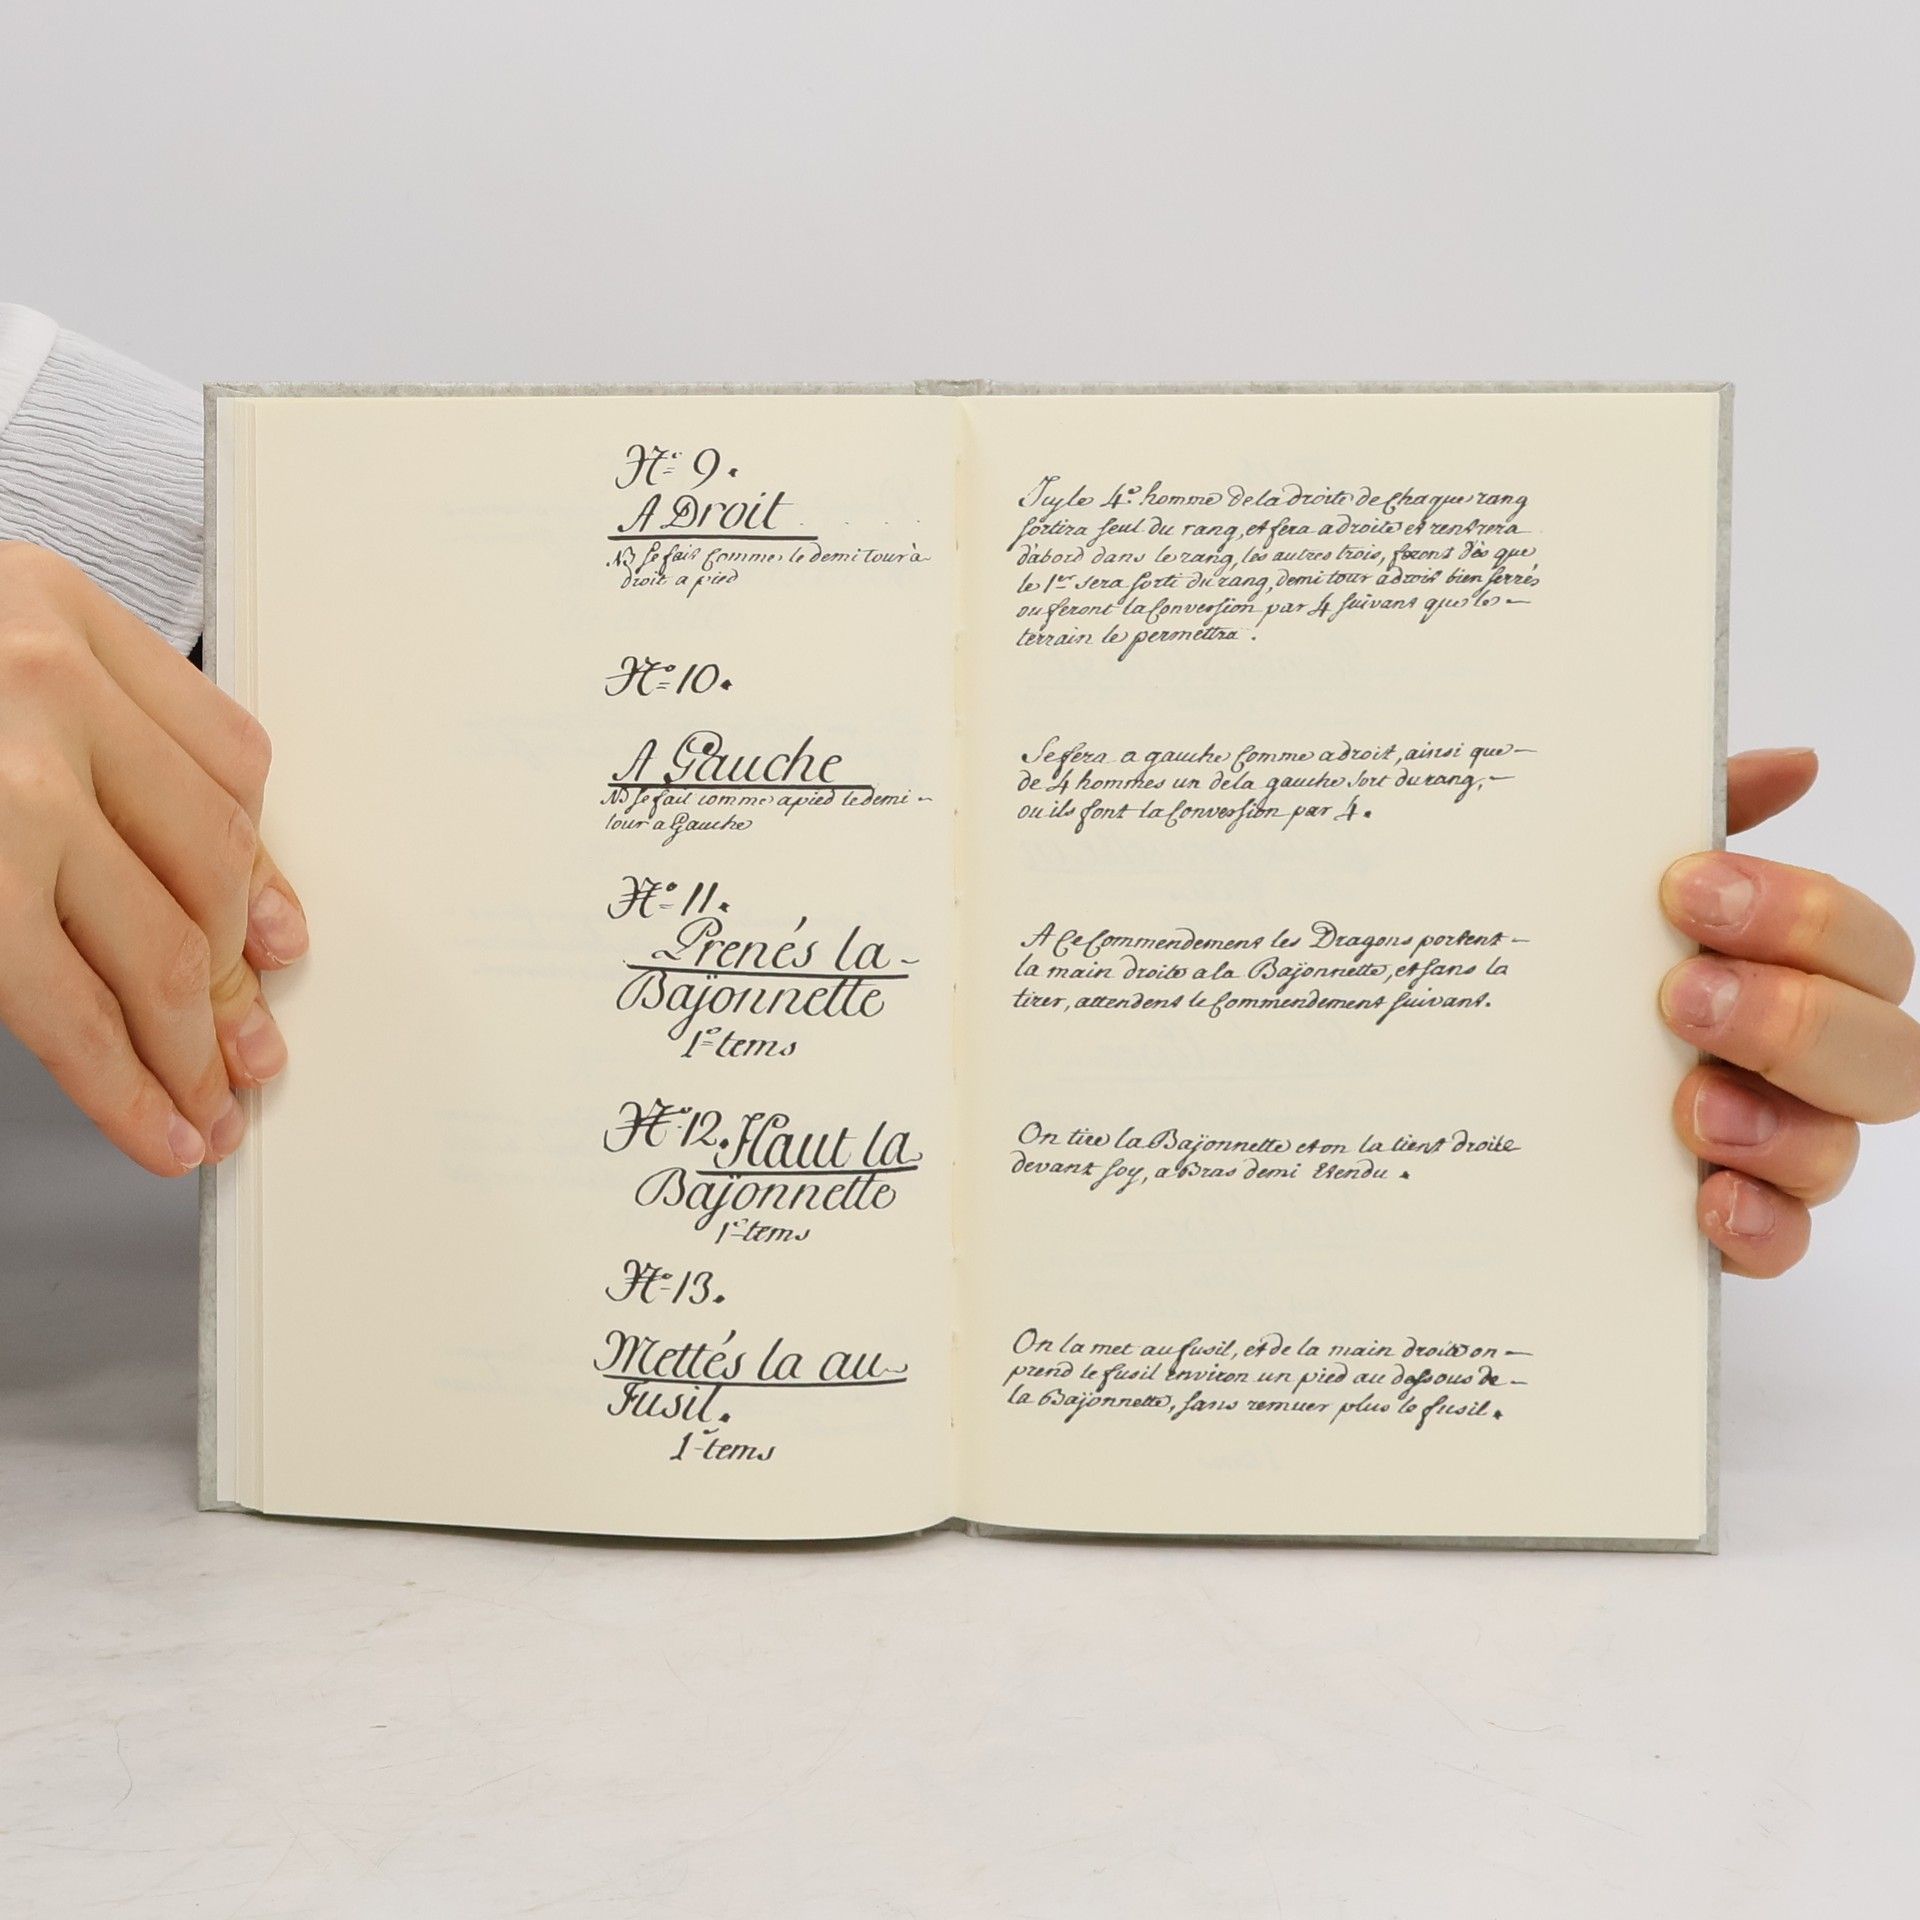 N.º 9.
A Droit
NB se fait Comme le demi tour à
droit a pied
N.º 10.
A Gauche
NB se fait comme a pied le demi -
tour a Gauche
N.º 11.
Prenés la -
Bajonnette
1.º tems
N.º 12. Haut la
Bajonnette
1.º tems
N.º 13.
Mettés la au -
Fusil.
1.º tems
Icy le 4.e homme de la droite de Chaque rang
sortira seul du rang, et fera a droite et rentrera
d'abord dans le rang, les autres trois, feront dès que
le 1.er sera sorti du rang, demi tour à droit bien serrés
ou feront la Conversion par 4 suivant que le -
terrain le permettra.
Se fera a gauche Comme a droit, ainsi que -
de 4 hommes un de la gauche sort du rang, -
ou ils font la Conversion par 4.
A Ce Commendement les Dragons portent -
la main droite a la Bajonnette, et sans la
tirer, attendent le Commendement suivant.
On tire la Bajonnette et on la tient droite
devant soy, a Bras demi Etendu.
On la met au fusil, et de la main droite on -
prend le fusil environ un pied au dessous de -
la Bajonnette, sans remuer plus le fusil.